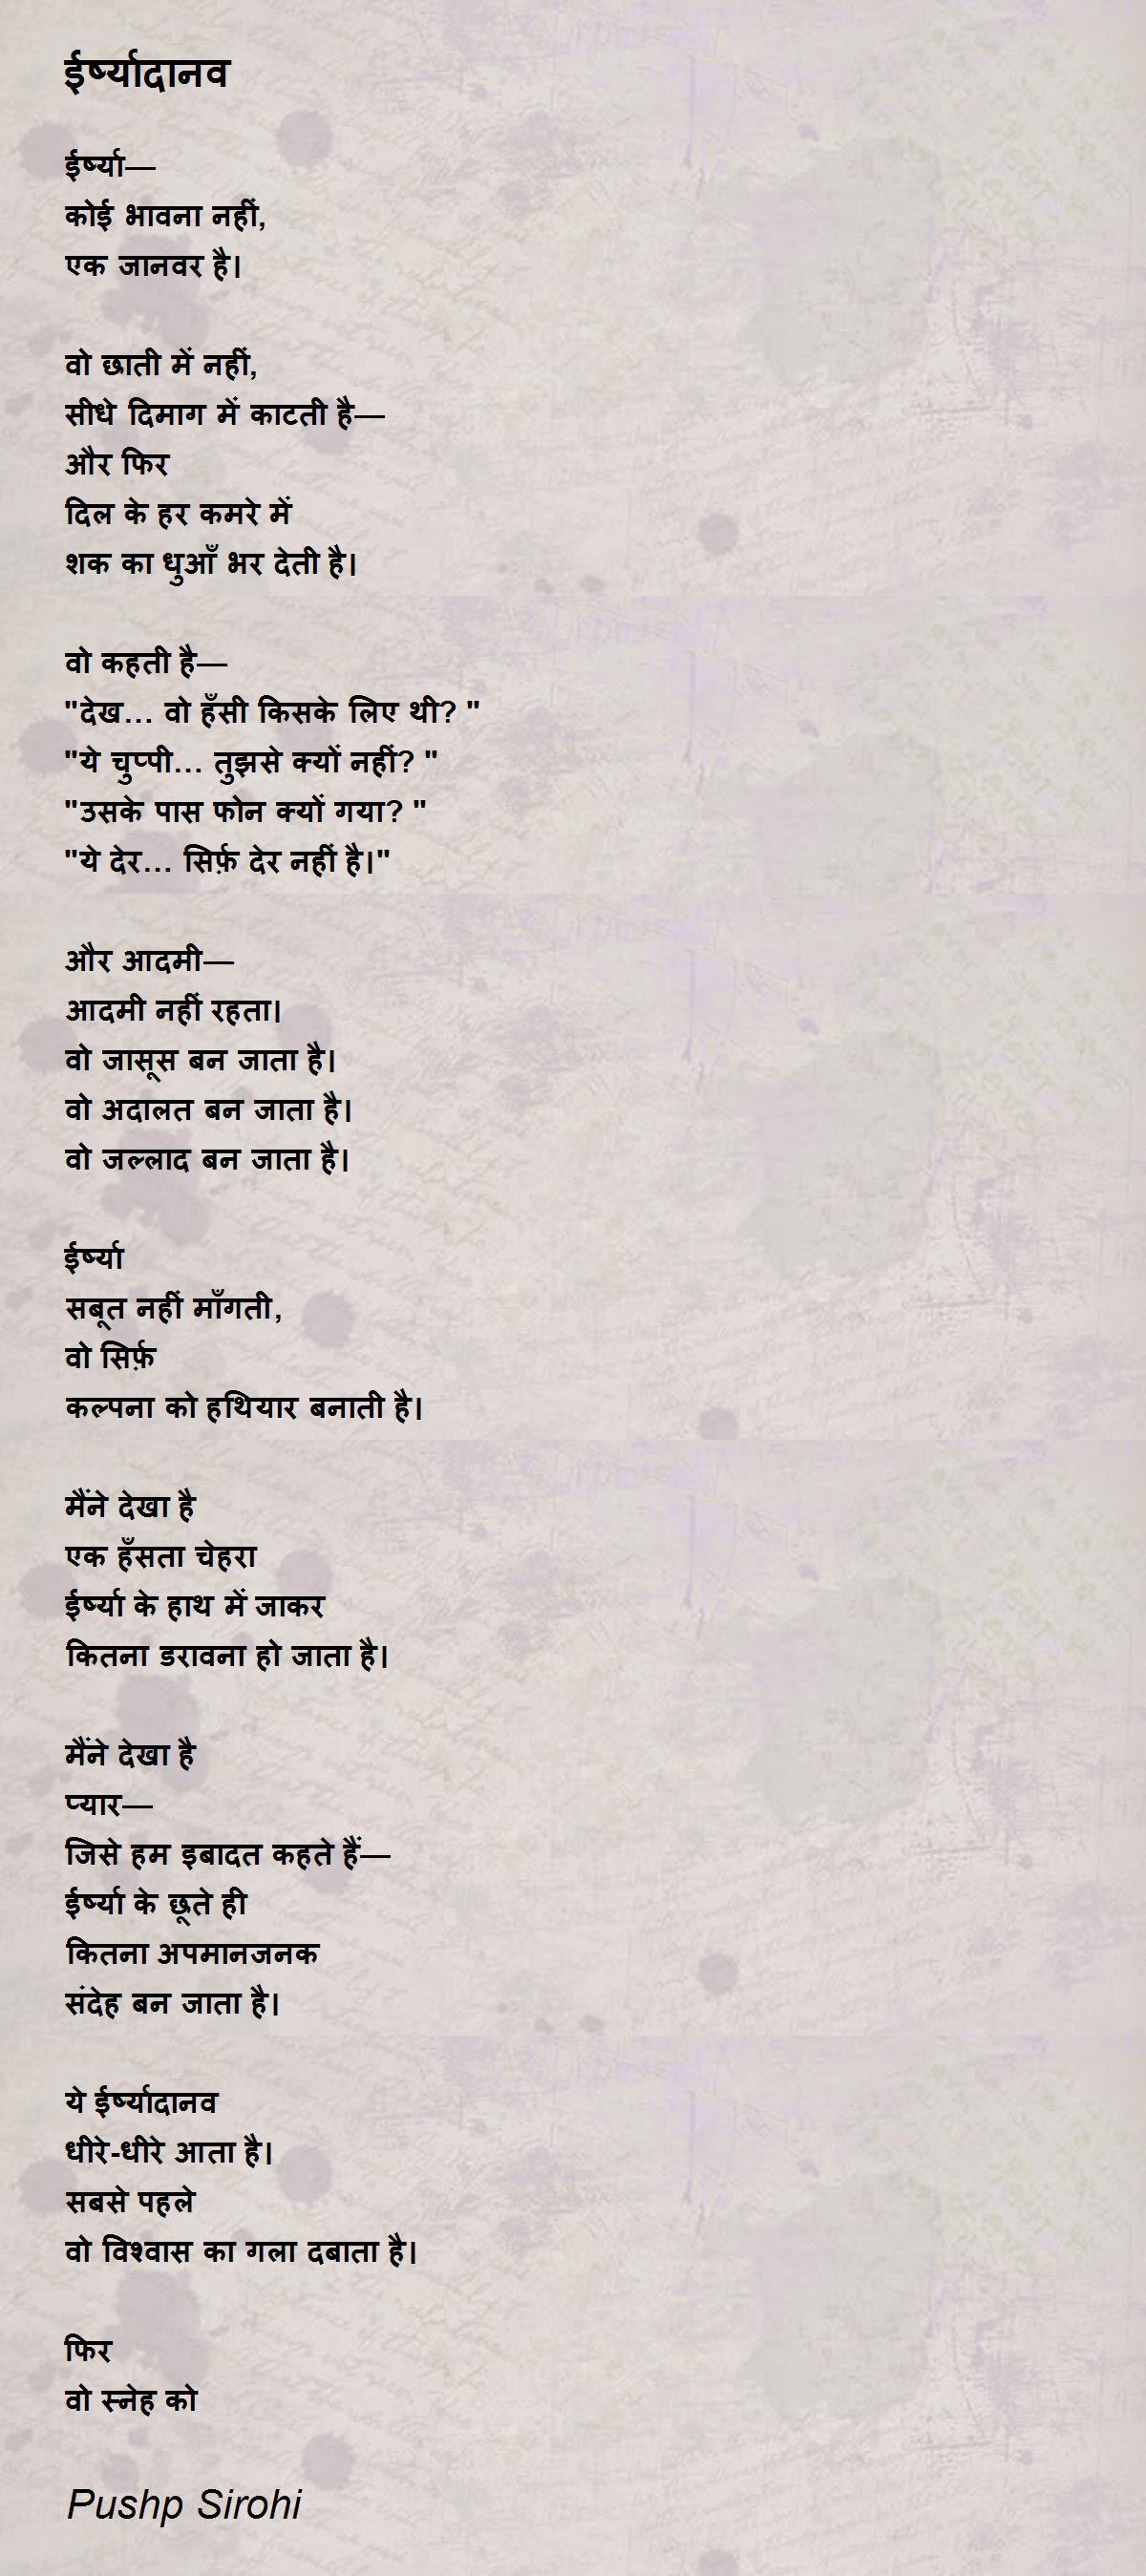 ईर्ष्यादानव
ईर्ष्या—
कोई भावना नहीं,
एक जानवर है।
वो छाती में नहीं,
सीधे दिमाग में काटती है—
और फिर
दिल के हर कमरे में
शक का धुआँ भर देती है।
वो कहती है—
"देख... वो हँसी किसके लिए थी? "
"ये चुप्पी... तुझसे क्यों नहीं? "
"उसके पास फोन क्यों गया? "
"ये देर... सिर्फ़ देर नहीं है।"
और आदमी—
आदमी नहीं रहता।
वो जासूस बन जाता है।
वो अदालत बन जाता है।
वो जल्लाद बन जाता है।
ईर्ष्या
सबूत नहीं माँगती,
वो सिर्फ़
कल्पना को हथियार बनाती है।
मैंने देखा है
एक हँसता चेहरा
ईर्ष्या के हाथ में जाकर
कितना डरावना हो जाता है।
मैंने देखा है
प्यार—
जिसे हम इबादत कहते हैं—
ईर्ष्या के छूते ही
कितना अपमानजनक
संदेह बन जाता है।
ये ईर्ष्यादानव
धीरे-धीरे आता है।
सबसे पहले
वो विश्वास का गला दबाता है।
फिर
वो स्नेह को
Pushp Sirohi